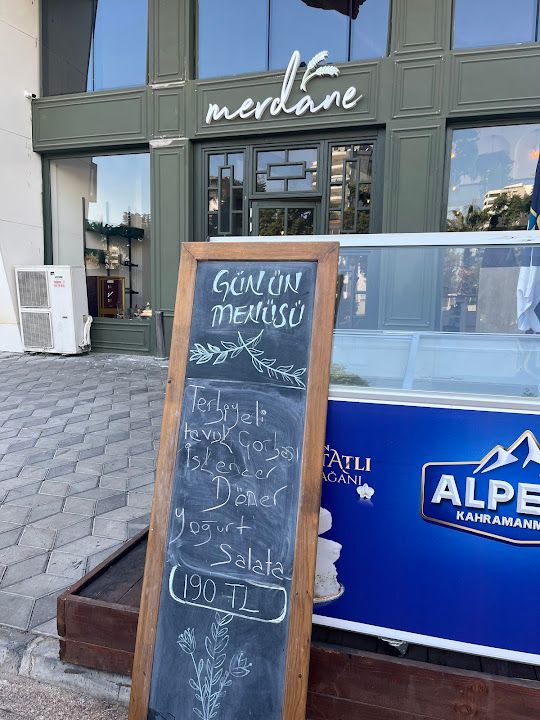 merdane
GÜNÜN
MENÜSÜ
Terbiyeli
tavuk Çorbası
İskender
Döner
yogurt
Salata
190 TL
TATLI
ALPE
KAHRAMANM